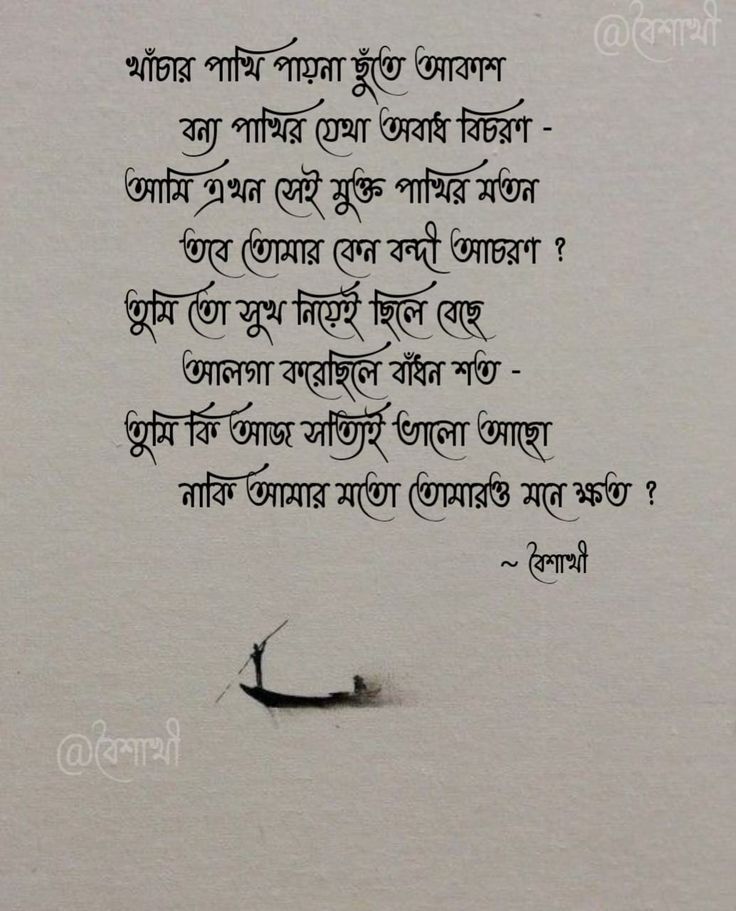 @বৈশাখী
খাঁচার পাখি পায়না ছুঁতে আকাশ
বন্য পাখির যেথা অবাধ বিচরণ -
আমি এখন সেই মুক্ত পাখির মতন
তবে তোমার কেন বন্দী আচরণ ?
তুমি তো সুখ নিয়েই ছিলে বেছে
আলগা করেছিলে বাঁধন শত -
তুমি কি আজ সত্যিই ভালো আছো
নাকি আমার মতো তোমারও মনে ক্ষত ?
~ বৈশাখী
@বৈশাখী